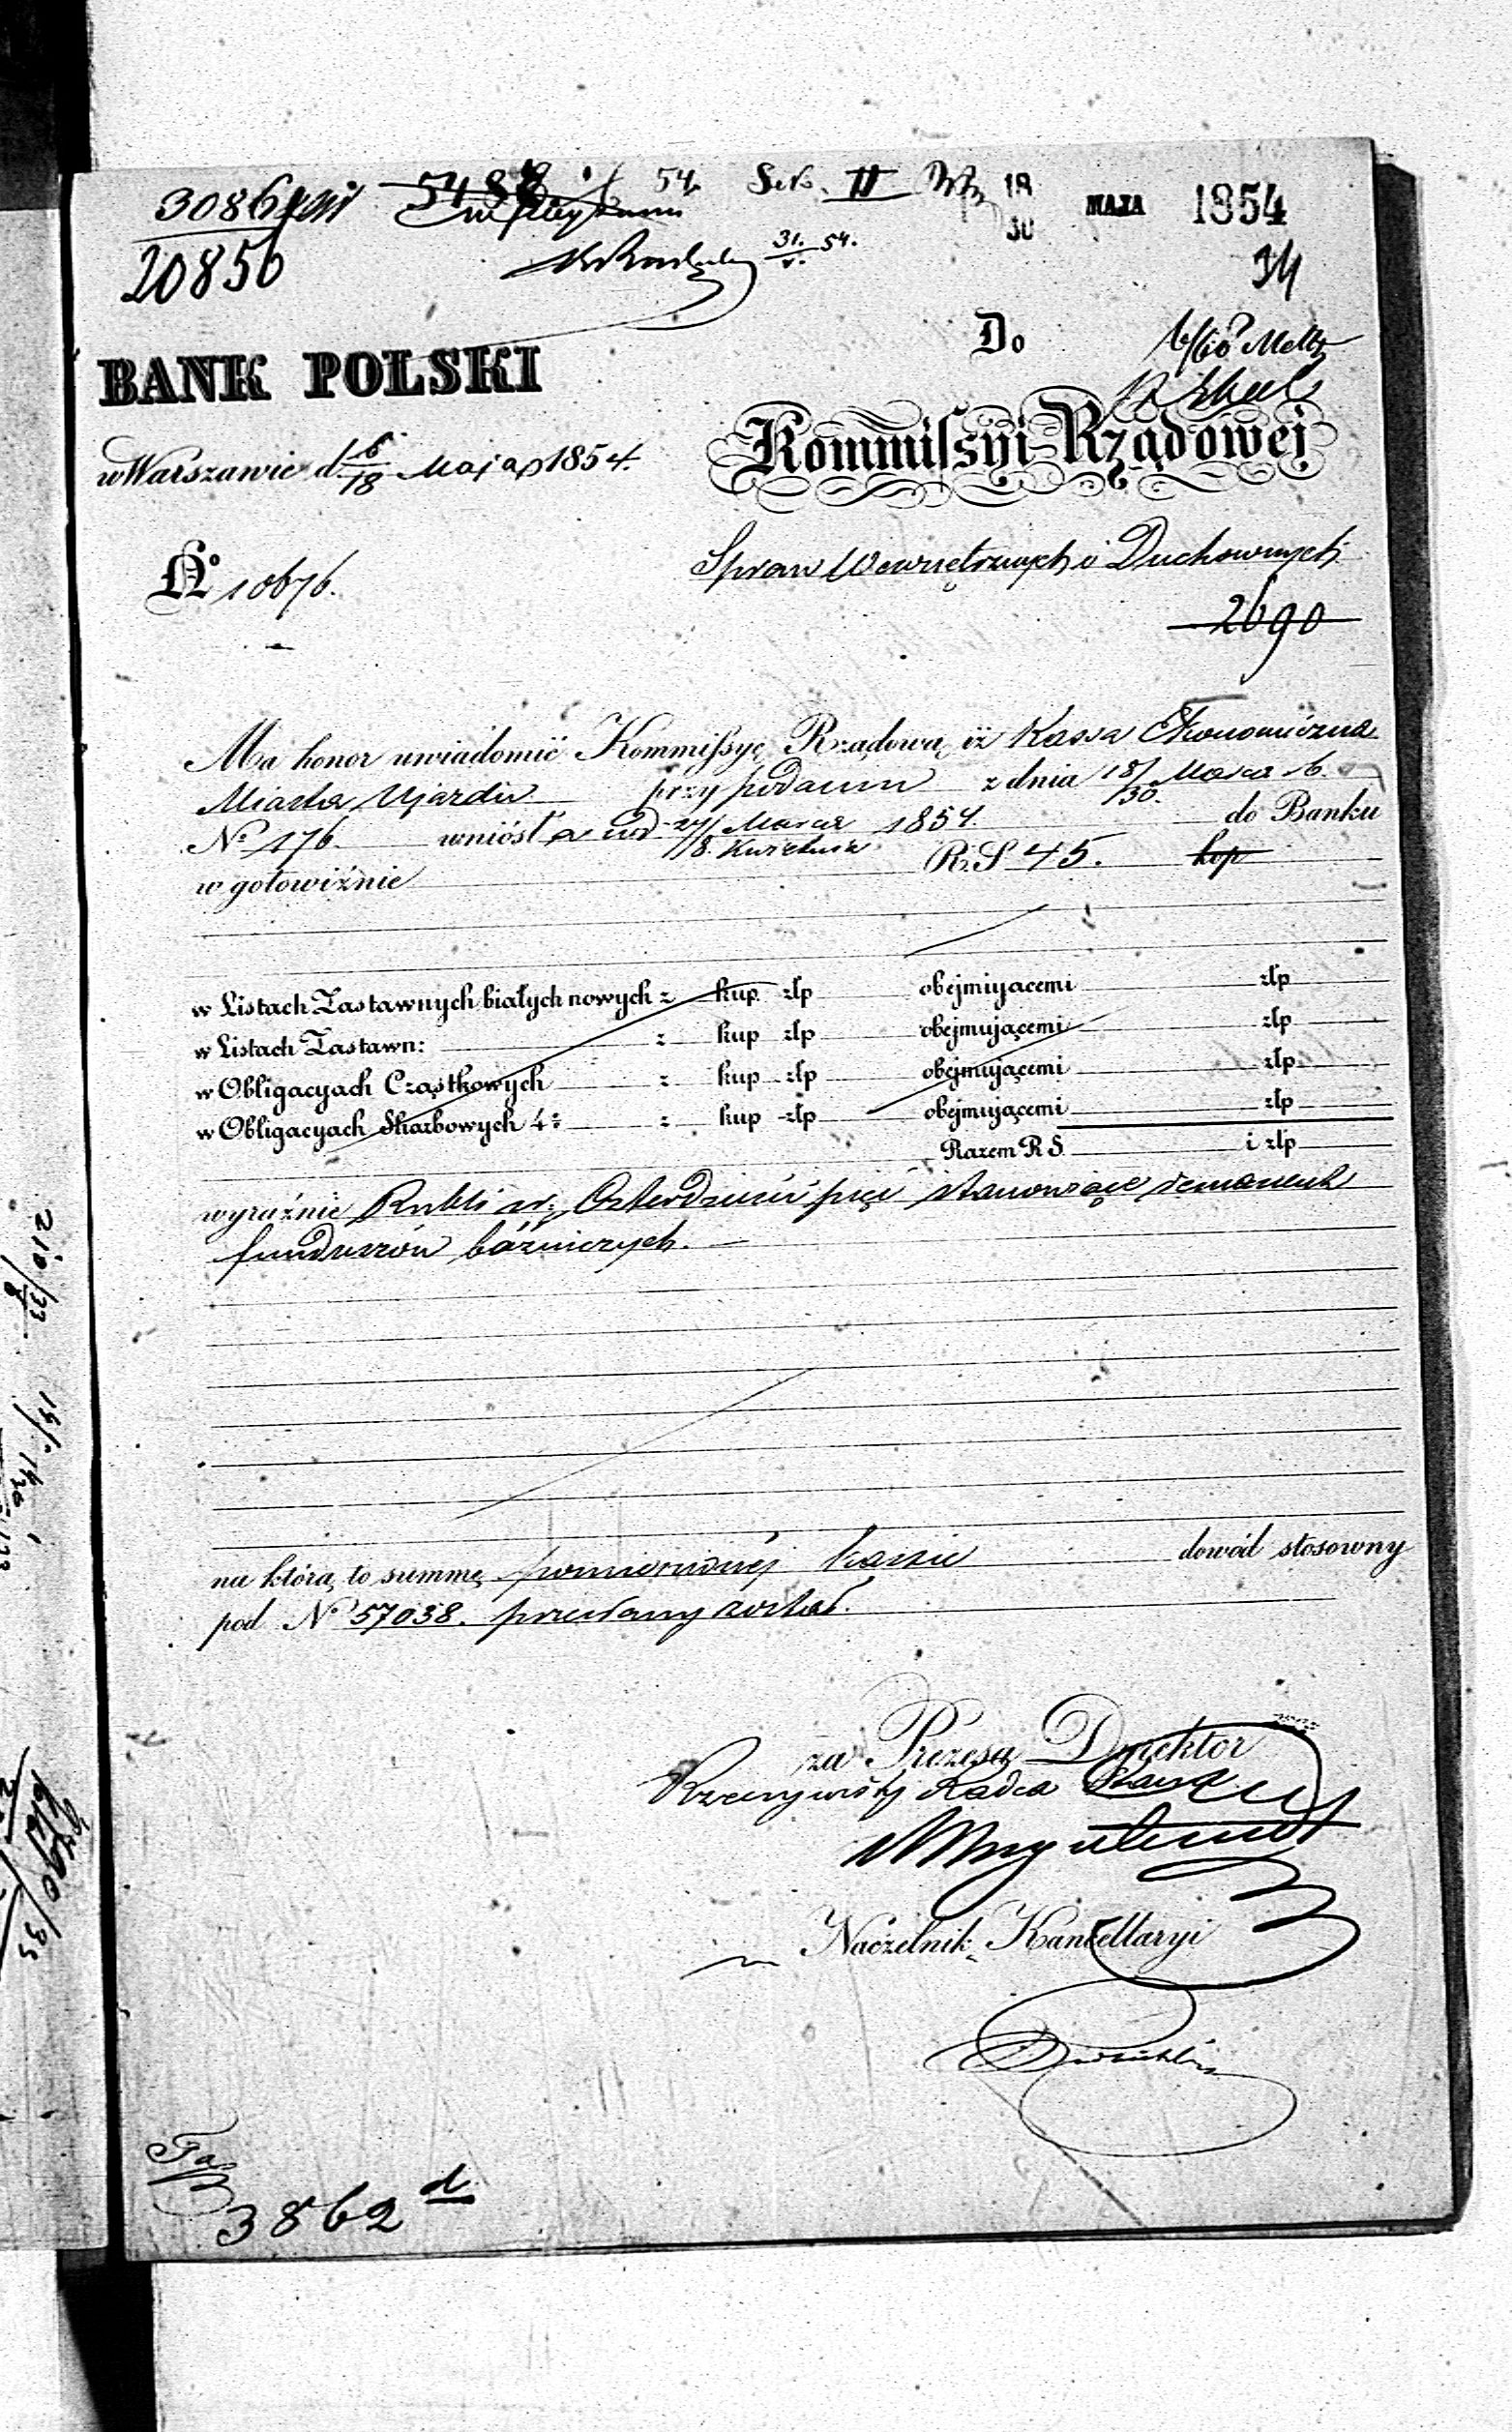 3086
20856
5488 54. Sek. II 18/30 MAJA 1854
31/V. 54.
34
BANK POLSKI
Do
w Warszawie d. 6/18 Maja 1854.
Kommissyi Rządowej
No 10676.
Spraw Wewnętrznych i Duchownych
2690
Ma honor uwiadomić Kommissyę Rządową, iż Kassa Ekonomiczna
Miasta Ujazdu przy podaniu z dnia 18/30. Marca r. b.
No 176. wniosła pod 27/8 Marca/Kwietnia 1854. do Banku
w gotowiźnie R.S 45. kop
w Listach Zastawnych białych nowych z kup złp obejmiyącemi złp
w Listach Zastawn: z kup złp obejmująçemi złp
w Obligacyach Cząstkowych z kup złp obejmująçemi złp
w Obligacyach Skarbowych 4: z kup złp obejmująçemi złp
Razem R S. i złp
wyraźnie Rubli sr. Czterdzieści pięć stanowiące remanent
funduszów bóżniczych.
na którą to summę pomienionéj kassie dowód stosowny
pod No 57038. przesłany został.
za Prezesa Dyrektor
Rzeczywisty Radca Stanu
Naczelnik Kancellaryi
3862 d